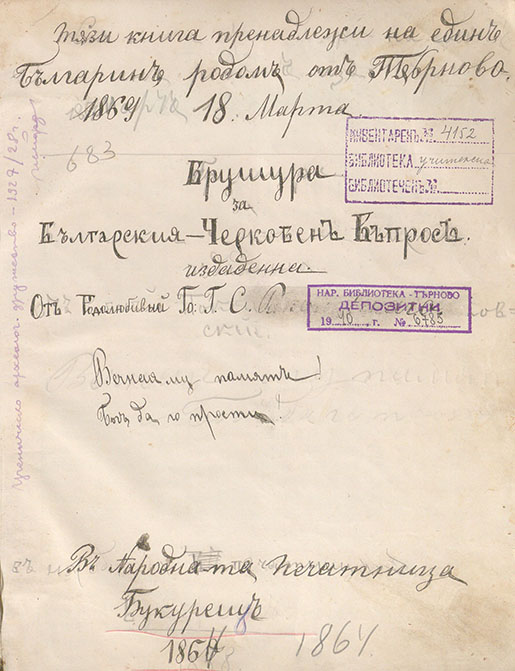 Тѫзи книга пренадлѣжи на единъ
Българинъ родомъ отъ Тѣрново.
1869 18. Марта.
683
ИНВЕНТАРЕНЪ № 4152
БИБЛИОТЕКА учителска
БИБЛИОТЕЧЕНЪ №
Брушура
за
Бѣлгарския-Черковенъ Вѣпросъ.
издаденна.
Отъ Родолюбивый Го. Г. С.
НАР. БИБЛИОТЕКА - ТЪРНОВО
ДЕПОЗИТНИ
1940 г. № 6783
Вечная му память!
Богъ да го прости
Въ Народна-та печатница
Букурещъ
1864
1864.